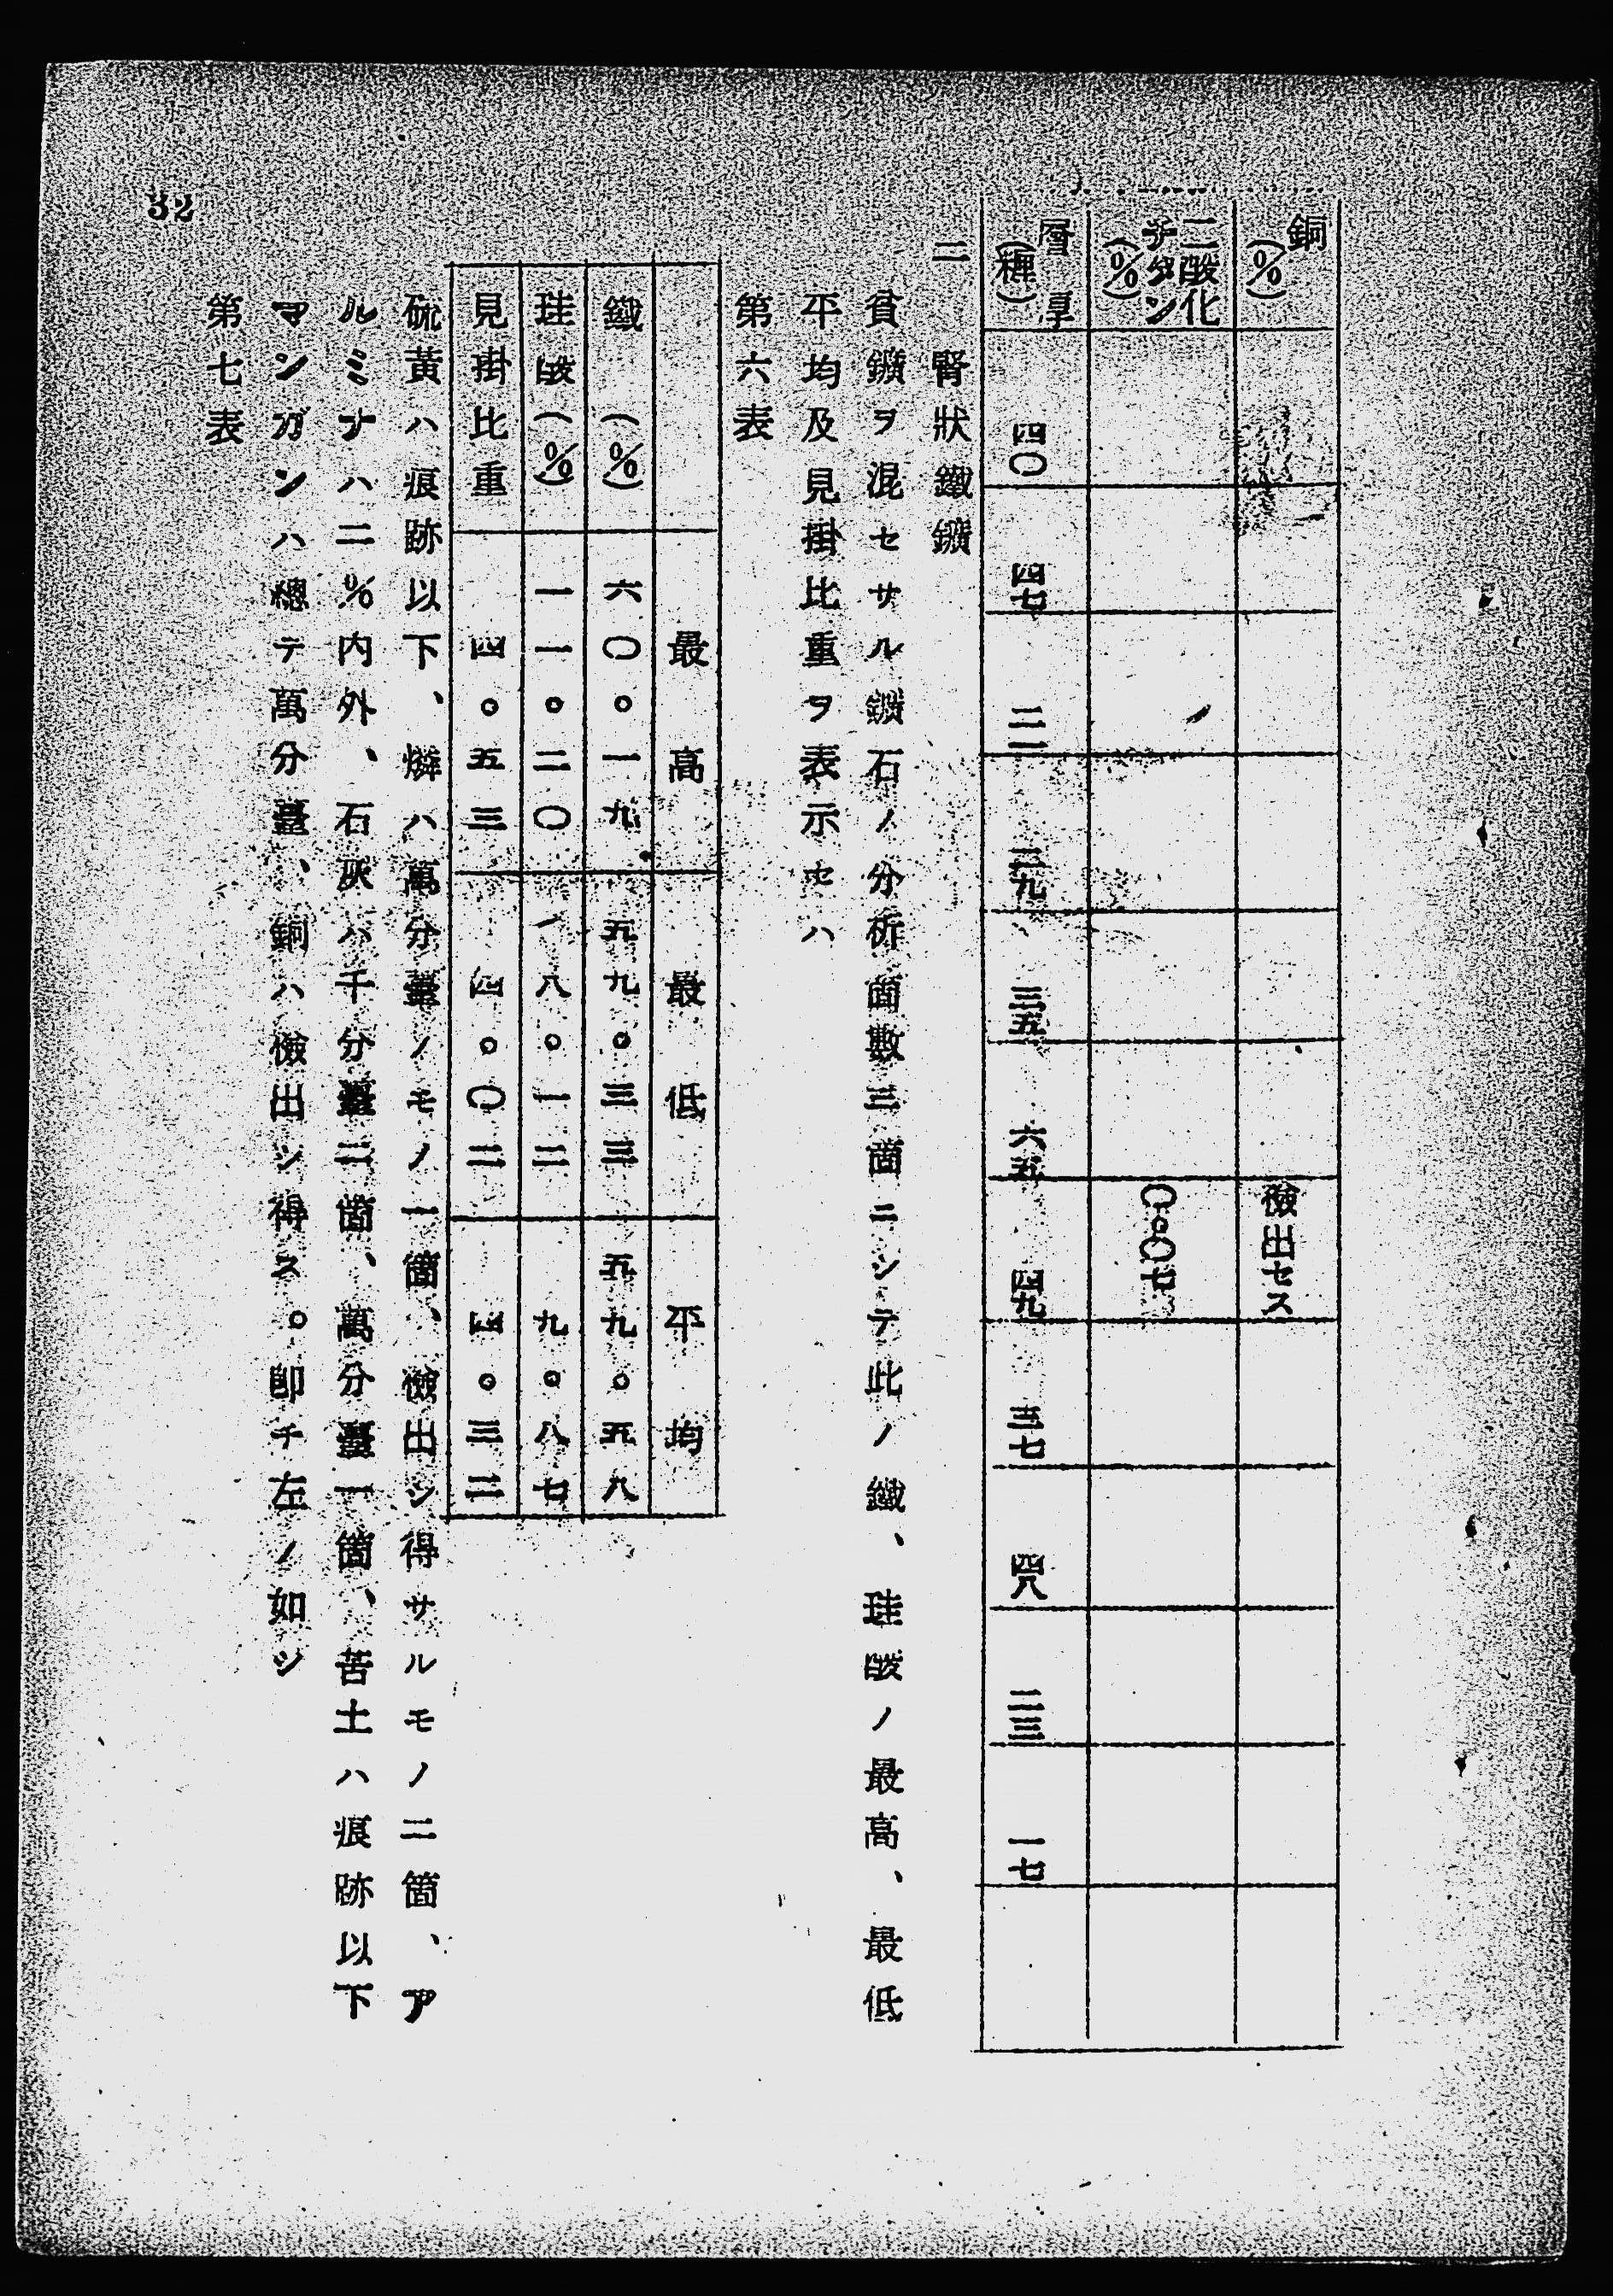 銅(%) 檢出セス
二酸化チタン(%) 〇・〇七
層厚(糎) 四〇 四七 二一 三九 三五 六五 四九 三七 四八 二三 一七
二 腎狀鐵鑛
貧鑛ヲ混セサル鑛石ノ分析箇數三箇ニシテ此ノ鐵、珪酸ノ最高、最低
平均及見掛比重ヲ表示セハ
第六表
最高 最低 平均
鐵(%) 六〇。一九 五九。三三 五九。五八
珪酸(%) 一一。二〇 八。一二 九。八七
見掛比重 四。五三 四。〇二 四。三二
硫黃ハ痕跡以下、燐ハ萬分臺ノモノ一箇、檢出シ得サルモノ二箇、ア
ルミナハ二%內外、石灰ハ千分臺二箇、萬分臺一箇、苦土ハ痕跡以下
マンガンハ總テ萬分臺、銅ハ檢出シ得ス。卽チ左ノ如シ
第七表
32